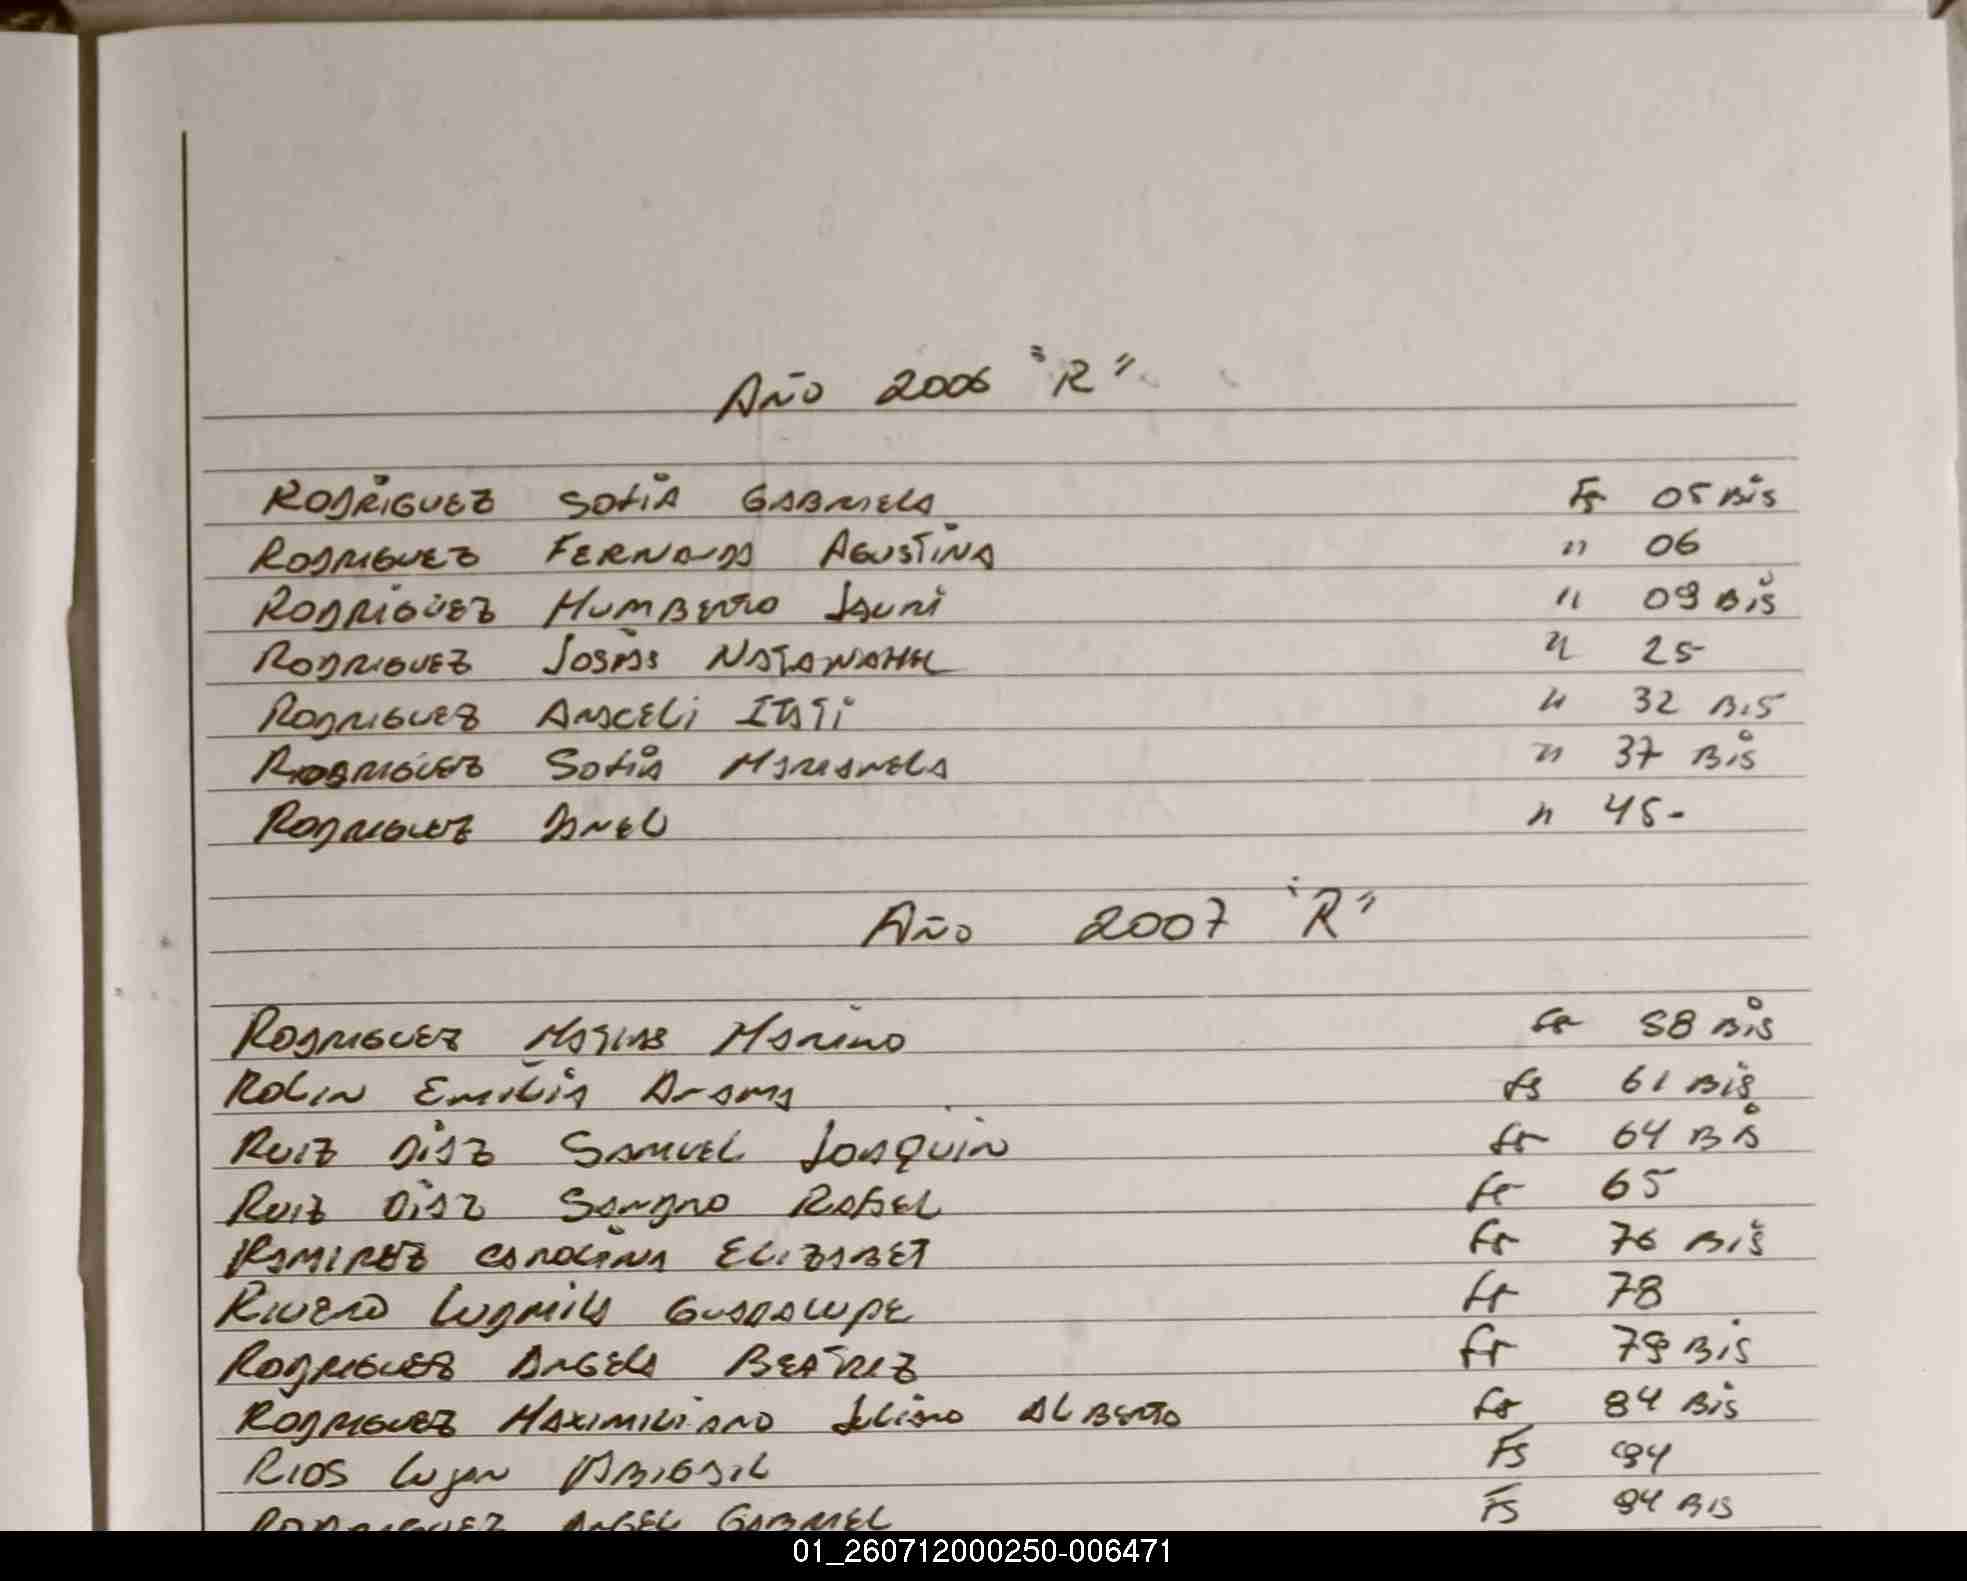 Año 2006 "R"
RODRIGUEZ SOFIA GABRIELA Fs 05 Bis
RODRIGUEZ FERNANDA AGUSTINA " 06
RODRIGUEZ HUMBERTO " 09 Bis
RODRIGUEZ JOSIAS NATANAHEL " 25
RODRIGUEZ ARACELI ITATI " 32 BIS
RODRIGUEZ SOFIA MARIANELA " 37 Bis
RODRIGUEZ " 45-
Año 2007 "R"
RODRIGUEZ MATIAS MARINO Fs 58 Bis
ROLIN EMILIA Fs 61 Bis
RUIZ DIAZ SAMUEL JOAQUIN Fs 64 Bis
RUIZ DIAZ SANDRO RAFAEL Fs 65
RAMIREZ CAROLINA ELIZABET Fs 76 Bis
RIVERO LUDMILA GUADALUPE Fs 78
RODRIGUEZ ANGELA BEATRIZ Fs 79 Bis
RODRIGUEZ MAXIMILIANO Juliano ALBERTO Fs 84 Bis
RIOS Lujan ABIGAIL Fs 94
RODRIGUEZ ANGEL GABRIEL Fs 94 BIS
01_260712000250-006471